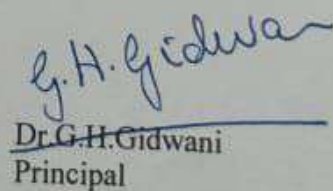 G.H.Gidwan
Dr.G.H.Gidwani
Principal